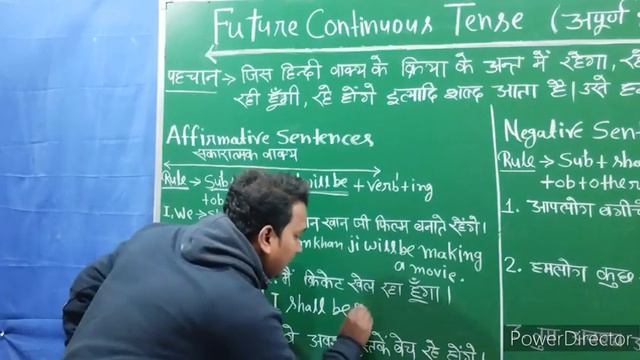 Future Continuous Tense (अपूर्ण
पहचान → जिस हिन्दी वाक्य के क्रिया के अन्त में रहेगा,
रही हूँगी, रहे होंगे इत्यादि शब्द आता है। उसे
Affirmative Sentences
सकारात्मक वाक्य
Rule → Sub will be + verb¹ + ing
+ ob
I, We →
खान जी फिल्म बनाते रहेंगे।
khan ji will be making
a movie.
मैं क्रिकेट खेल रहा हूँगा।
I shall be
बेच रहे होंगे।
Negative Sen
Rule → Sub + sha
+ ob + other
1. आपलोग
2. हमलोग कुछ
PowerDirector